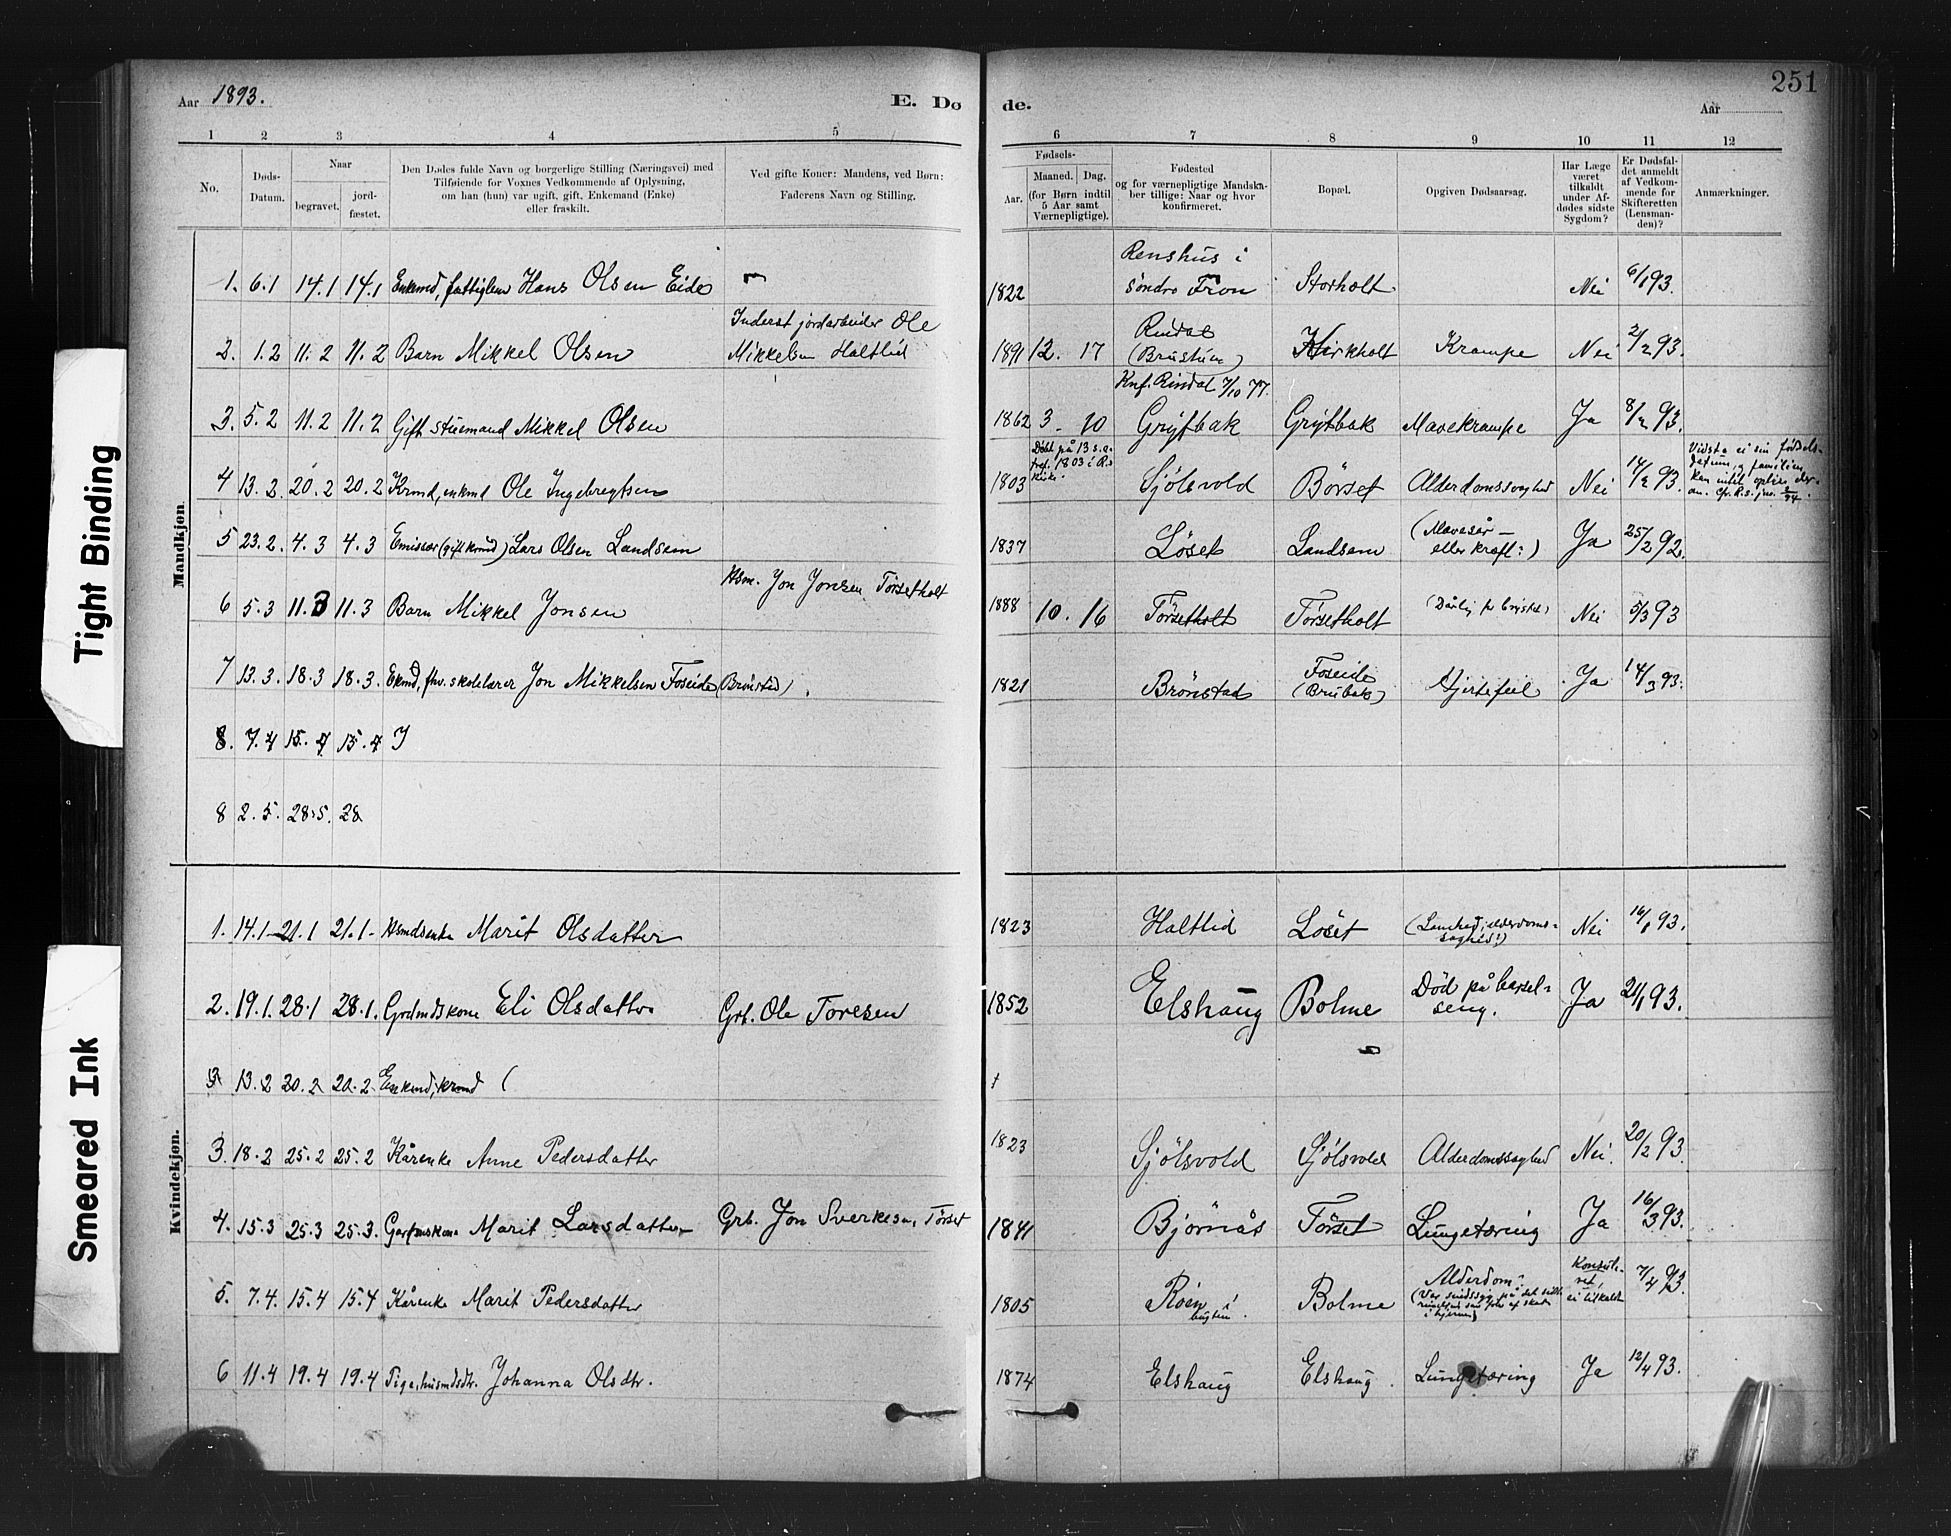 251
Aar 1893.
E. Dø
de.
Aar
1 2 3 4 5 6 7 8 9 10 11 12
No.
Døds-
Datum.
Naar
begravet.
jord-
fæstet.
Den Dødes fulde Navn og borgerlige Stilling (Næringsvei) med
Tilføiende for Voxnes Vedkommende af Oplysning,
om han (hun) var ugift, gift, Enkemand (Enke)
eller fraskilt.
Ved gifte Koner: Mandens, ved Børn:
Faderens Navn og Stilling.
Fødsels-
Aar.
Maaned. Dag.
(for Børn indtil
5 Aar samt
Værnepligtige).
Fødested
og for værnepligtige Mandska-
ber tillige: Naar og hvor
konfirmeret.
Bopæl.
Opgiven Dødsaarsag.
Har Læge
været
tilkaldt
under Af-
dødes sidste
Sygdom?
Er Dødsfal-
det anmeldt
af Vedkom-
mende for
Skifteretten
(Lensman-
den)?
Anmærkninger.
Mandkjøn.
1. 6.1 14.1 14.1 Enkmd, fattiglem Hans Olsen Eide 1822 Renshus i
søndre Fron Storholt Nei 6/1 93.
2. 1.2 11.2 11.2 Barn Mikkel Olsen Inderst jordarbeider Ole
Mikkelsen Haltlid 1891 12. 17 Rindal
(Brustuen) Kirkholt Krampe Nei 2/2 93.
3. 5.2 11.2 11.2 Gift stuemand Mikkel Olsen 1862 3. 10 Knf. Rindal 7/10 77.
Grytbak Grytbak Mavekrampe Ja 8/2 93.
4 13.2. 20.2 20.2 Krmd, enkmd Ole Ingebregtsen 1803 Døbt på 13 s. e.
tref. 1803 i R.s
kirke. Sjölsvold Börset Alderdomssvaghed Nei 14/2 93. Vidste ei sin fødsels-
datum, familien
kan intet oplyse der-
om.
5 23.2. 4.3 4.3 Emissær (gift krmd) Lars Olsen Landsem 1837 Löset Landsem (Mavesår —
eller kræft?) Ja 25/2 92.
6 5.3 11.3 11.3 Barn Mikkel Jonsen Hsm. Jon Jonsen Törsetholt 1888 10. 16 Törsetholt Törsetholt (Dårlig for brystet) Nei 5/3 93
7 13.3. 18.3 18.3. Ekmd, fhv. skolelærer Jon Mikkelsen Foseide (Brönstad). 1821 Brönstad Foseide
(Brubak) Hjertefeil Ja 14/3 93.
8. 7.4 15.4 15.4 J
8 2.5. 28.5. 28
Kvindekjøn.
1. 14.1 21.1 21.1- Hsmdsenke Marit Olsdatter 1823 Haltlid Löset (Lamhed, alderdoms-
svaghed?) Nei 16/1 93.
2. 19.1. 28.1 28.1. Grdmdskone Eli Olsdatter Grb. Ole Toresen 1852 Elshaug Bolme Död på barsel-
seng. Ja 21/1 93.
3 13.2 20.2 20.2. Enkmd, krmd (
3. 18.2 25.2 25.2 Kårenke Anne Pedersdatter 1823 Sjölsvold Sjölsvold Alderdomssvaghed Nei. 20/2 93.
4. 15.3 25.3 25.3. Gardmskone Marit Larsdatter Grb. Jon Sverkesen Törset 1841 Björnås Törset Lungetæring Ja 16/3 93.
5. 7.4. 15.4 15.4 Kårenke Marit Pedersdatter 1805 Röen
Bolme Alderdom.
(Var sindssyg på det sidste
i hjernen) Konsule-
ret,
ei tilkaldt 7/4 93.
6 11.4 19.4 19.4 Pige, husmdsdtr. Johanna Olsdtr. 1874 Elshaug Elshaug. Lungetæring Ja 12/4 93.
Tight Binding
Smeared Ink